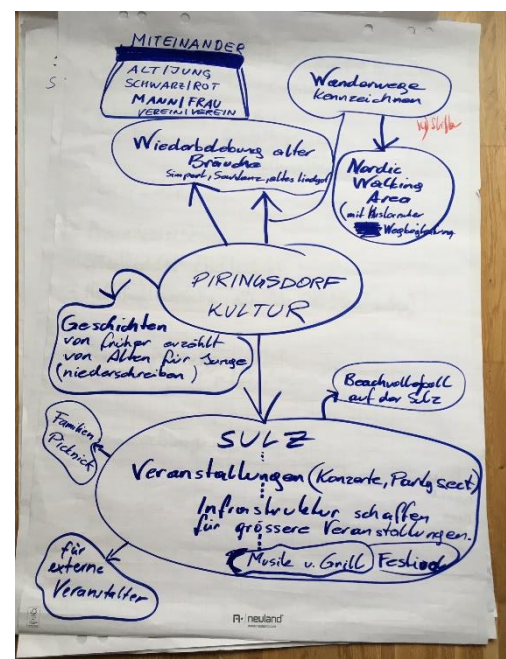 MITEINANDER
ALT/JUNG
SCHWARZ/ROT
MANN/FRAU
VEREIN/VEREIN
Wanderwege
kennzeichnen
Wiederbelebung alter
Bräuche
Simpart, Sautanz, altes Liedgut
Nordic
Walking
Area
(mit
Wegbegleitung
PIRINGSDORF
KULTUR
Geschichten
von früher erzählt
von Alten für Junge
(niederschreiben)
Beachvolleyball
auf der Sulz
Familien
Picknick
SULZ
Veranstaltungen (Konzerte, Partys etc.)
Infrastruktur schaffen
für grössere Veranstaltungen.
Musik u. Grill Festival
für
externe
Veranstalter
neuland